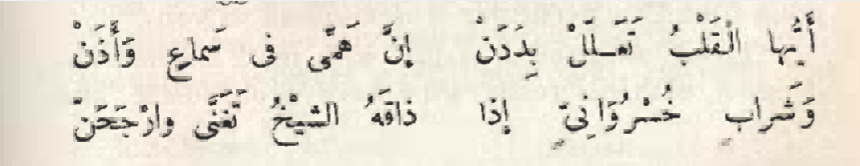 أَيُّهَا الْقَلْبُ تَعَـلَّلْ بِدَدَنْ إِنَّ هَمِّى فى سَماعٍ وَأَذَنْ
وَشَرابٍ خُسْرُوَانِىٍّ إذا ذاقَهُ الشيْخُ تَغَنَّى وارْجَحَنْ